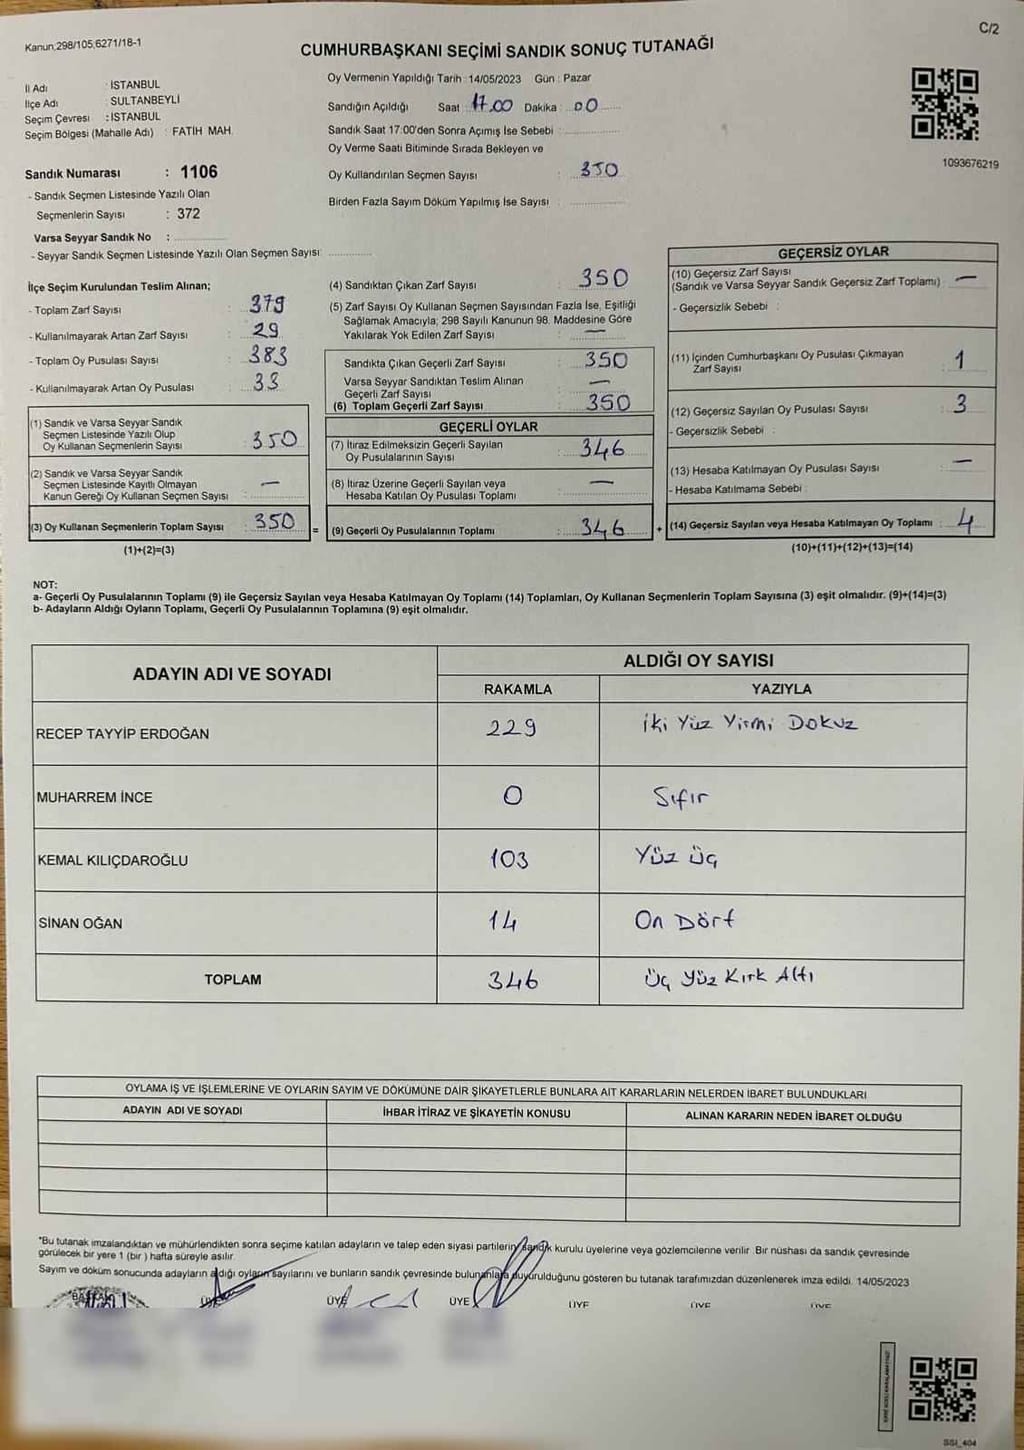 Kanun;298/105;6271/18-1
C/2
CUMHURBAŞKANI SEÇİMİ SANDIK SONUÇ TUTANAĞI
İl Adı : İSTANBUL
İlçe Adı : SULTANBEYLİ
Seçim Çevresi : İSTANBUL
Seçim Bölgesi (Mahalle Adı) : FATİH MAH.
Sandık Numarası : 1106
- Sandık Seçmen Listesinde Yazılı Olan
Seçmenlerin Sayısı : 372
Varsa Seyyar Sandık No :
- Seyyar Sandık Seçmen Listesinde Yazılı Olan Seçmen Sayısı:
Oy Vermenin Yapıldığı Tarih : 14/05/2023 Gün : Pazar
Sandığın Açıldığı Saat : 17.00 Dakika : 00
Sandık Saat 17:00'den Sonra Açımış İse Sebebi :
Oy Verme Saati Bitiminde Sırada Bekleyen ve
Oy Kullandırılan Seçmen Sayısı : 350
Birden Fazla Sayım Döküm Yapılmış İse Sayısı :
1093676219
İlçe Seçim Kurulundan Teslim Alınan;
- Toplam Zarf Sayısı : 379
- Kullanılmayarak Artan Zarf Sayısı : 29
- Toplam Oy Pusulası Sayısı : 383
- Kullanılmayarak Artan Oy Pusulası : 33
(1) Sandık ve Varsa Seyyar Sandık
Seçmen Listesinde Yazılı Olup
Oy Kullanan Seçmenlerin Sayısı : 350
(2) Sandık ve Varsa Seyyar Sandık
Seçmen Listesinde Kayıtlı Olmayan
Kanun Gereği Oy Kullanan Seçmen Sayısı : —
(3) Oy Kullanan Seçmenlerin Toplam Sayısı : 350 =
(1)+(2)=(3)
(4) Sandıktan Çıkan Zarf Sayısı : 350
(5) Zarf Sayısı Oy Kullanan Seçmen Sayısından Fazla İse, Eşitliği
Sağlamak Amacıyla; 298 Sayılı Kanunun 98. Maddesine Göre
Yakılarak Yok Edilen Zarf Sayısı : —
Sandıkta Çıkan Geçerli Zarf Sayısı : 350
Varsa Seyyar Sandıktan Teslim Alınan
Geçerli Zarf Sayısı : —
(6) Toplam Geçerli Zarf Sayısı : 350
GEÇERLİ OYLAR
(7) İtiraz Edilmeksizin Geçerli Sayılan
Oy Pusulalarının Sayısı : 346
(8) İtiraz Üzerine Geçerli Sayılan veya
Hesaba Katılan Oy Pusulası Toplamı : —
(9) Geçerli Oy Pusulalarının Toplamı : 346 +
GEÇERSİZ OYLAR
(10) Geçersiz Zarf Sayısı
(Sandık ve Varsa Seyyar Sandık Geçersiz Zarf Toplamı) : —
- Geçersizlik Sebebi :
(11) İçinden Cumhurbaşkanı Oy Pusulası Çıkmayan
Zarf Sayısı : 1
(12) Geçersiz Sayılan Oy Pusulası Sayısı : 3
- Geçersizlik Sebebi :
(13) Hesaba Katılmayan Oy Pusulası Sayısı : —
- Hesaba Katılmama Sebebi :
(14) Geçersiz Sayılan veya Hesaba Katılmayan Oy Toplamı : 4
(10)+(11)+(12)+(13)=(14)
NOT:
a- Geçerli Oy Pusulalarının Toplamı (9) ile Geçersiz Sayılan veya Hesaba Katılmayan Oy Toplamı (14) Toplamları, Oy Kullanan Seçmenlerin Toplam Sayısına (3) eşit olmalıdır. (9)+(14)=(3)
b- Adayların Aldığı Oyların Toplamı, Geçerli Oy Pusulalarının Toplamına (9) eşit olmalıdır.
ADAYIN ADI VE SOYADI ALDIĞI OY SAYISI
RAKAMLA YAZIYLA
RECEP TAYYİP ERDOĞAN 229 İki Yüz Yirmi Dokuz
MUHARREM İNCE 0 Sıfır
KEMAL KILIÇDAROĞLU 103 Yüz Üç
SİNAN OĞAN 14 On Dört
TOPLAM 346 Üç Yüz Kırk Altı
OYLAMA İŞ VE İŞLEMLERİNE VE OYLARIN SAYIM VE DÖKÜMÜNE DAİR ŞİKAYETLERLE BUNLARA AİT KARARLARIN NELERDEN İBARET BULUNDUKLARI
ADAYIN ADI VE SOYADI İHBAR İTİRAZ VE ŞİKAYETİN KONUSU ALINAN KARARIN NEDEN İBARET OLDUĞU
"Bu tutanak imzalandıktan ve mühürlendikten sonra seçime katılan adayların ve talep eden siyasi partilerin sandık kurulu üyelerine veya gözlemcilerine verilir. Bir nüshası da sandık çevresinde
görülecek bir yere 1 (bir ) hafta süreyle asılır.
Sayım ve döküm sonucunda adayların aldığı oyların sayılarını ve bunların sandık çevresinde bulunanlara duyurulduğunu gösteren bu tutanak tarafımızdan düzenlenerek imza edildi. 14/05/2023
BAŞKAN ÜYE ÜYE ÜYE ÜYE ÜYE ÜYE
SSI_404